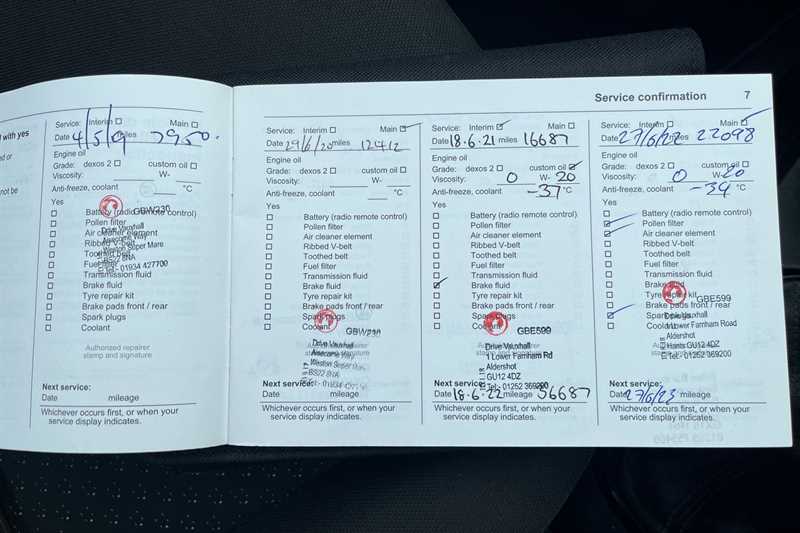 Service confirmation 7
l with yes
ed or
not be
Service: Interim Main
Date 4/5/9 miles 7950.
Engine oil
Grade: dexos 2 custom oil
Viscosity: W-
Anti-freeze, coolant °C
Yes
Battery (radio remote control)
Pollen filter
Air cleaner element
Ribbed V-belt
Toothed belt
Fuel filter
Transmission fluid
Brake fluid
Tyre repair kit
Brake pads front / rear
Spark plugs
Coolant
GBW230
Drive Vauxhall
Awesome Way
Weston Super Mare
BS22 8NA
Tel:- 01934 427700
Authorized repairer
stamp and signature
Next service:
Date mileage
Whichever occurs first, or when your
service display indicates.
Service: Interim Main
Date 29/6/20 miles 12412
Engine oil
Grade: dexos 2 custom oil
Viscosity: W-
Anti-freeze, coolant °C
Yes
Battery (radio remote control)
Pollen filter
Air cleaner element
Ribbed V-belt
Toothed belt
Fuel filter
Transmission fluid
Brake fluid
Tyre repair kit
Brake pads front / rear
Spark plugs
Coolant
GBW230
Drive Vauxhall
Awesome Way
Weston Super Mare
BS22 8NA
Tel:- 01934 427700
Next service:
Date mileage
Whichever occurs first, or when your
service display indicates.
Service: Interim Main
Date 18.6.21 miles 16687
Engine oil
Grade: dexos 2 custom oil
Viscosity: 0 W- 20
Anti-freeze, coolant -37 °C
Yes
Battery (radio remote control)
Pollen filter
Air cleaner element
Ribbed V-belt
Toothed belt
Fuel filter
Transmission fluid
Brake fluid
Tyre repair kit
Brake pads front / rear
Spark plugs
Coolant
GBE599
Drive Vauxhall
1 Lower Farnham Rd
Aldershot
GU12 4DZ
Tel:- 01252 369200
Next service:
Date 18.6.22 mileage 36687
Whichever occurs first, or when your
service display indicates.
Service: Interim Main
Date 27/6/22 miles 22098
Engine oil
Grade: dexos 2 custom oil
Viscosity: 0 W- 20
Anti-freeze, coolant -34 °C
Yes
Battery (radio remote control)
Pollen filter
Air cleaner element
Ribbed V-belt
Toothed belt
Fuel filter
Transmission fluid
Brake fluid
Tyre repair kit
Brake pads front / rear
Spark plugs
Coolant
GBE599
Drive Vauxhall
1 Lower Farnham Road
Aldershot
Hants GU12 4DZ
Tel:- 01252 369200
Next service:
Date 27/6/23 mileage
Whichever occurs first, or when your
service display indicates.